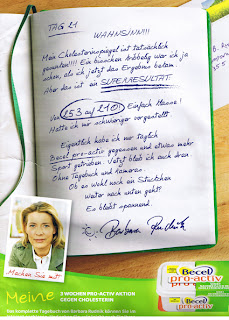 TAG 21
WAHNSINN!!!
Mein Cholesterinspiegel ist tatsächlich
gesunken!!!! Ein bisschen kribbelig war ich ja
schon, als ich jetzt das Ergebnis bekam.
Aber das ist ein SUPERRESULTAT.
Von 253 auf 210! Einfach Klasse!
Hatte ich mir schwieriger vorgestellt.
Eigentlich habe ich nur täglich
Becel pro-activ gegessen und etwas mehr
Sport getrieben. Jetzt bleib ich auch dran.
Ohne Tagebuch und Kameras.
Ob es wohl noch ein Stückchen
weiter nach unten geht?
Es bleibt spannend.
Barbara Rudnik
Machen Sie mit
Becel
pro-activ
Becel
pro-activ
Meine
3 WOCHEN PRO-ACTIV AKTION
GEGEN CHOLESTERIN
Das komplette Tagebuch von Barbara Rudnik können Sie im